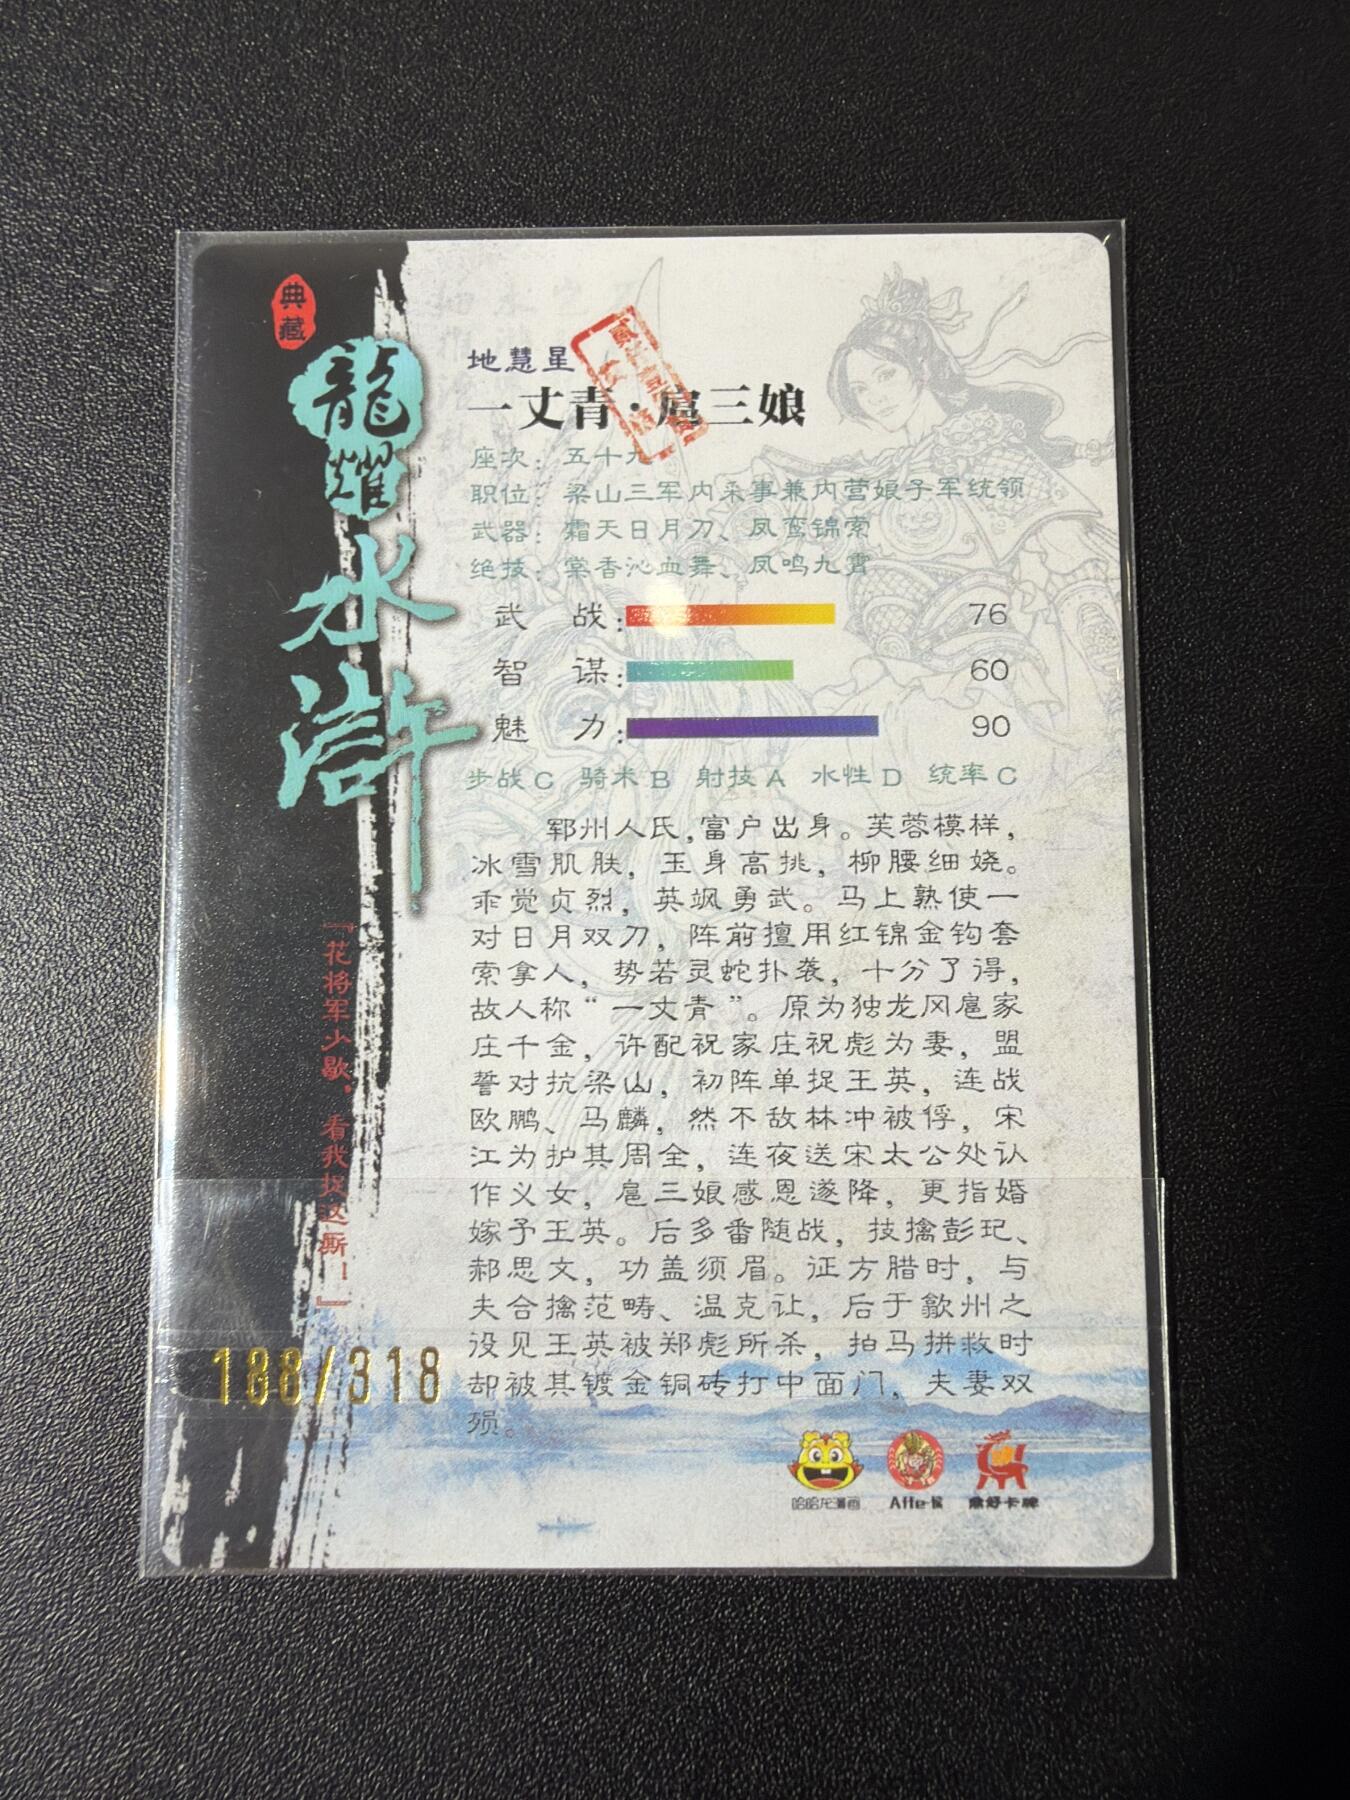 典藏
龍耀水滸
『花将军少歇，看我捉这厮！』
188/318
地慧星
一丈青·扈三娘
座次：五十九
职位：梁山三军内采事兼内营娘子军统领
武器：霜天日月刀、凤鸾锦索
绝技：棠香沁血舞、凤鸣九霄
武 战： 76
智 谋： 60
魅 力： 90
步战C 骑术B 射技A 水性D 统率C
郓州人氏，富户出身。芙蓉模样，
冰雪肌肤，玉身高挑，柳腰细娆。
乖觉贞烈，英飒勇武。马上熟使一
对日月双刀，阵前擅用红锦金钩套
索拿人，势若灵蛇扑袭，十分了得，
故人称“一丈青”。原为独龙冈扈家
庄千金，许配祝家庄祝彪为妻，盟
誓对抗梁山，初阵单捉王英，连战
欧鹏、马麟，然不敌林冲被俘，宋
江为护其周全，连夜送宋太公处认
作义女，扈三娘感恩遂降，更指婚
嫁予王英。后多番随战，技擒彭玘、
郝思文，功盖须眉。征方腊时，与
夫合擒范畴、温克让，后于歙州之
役见王英被郑彪所杀，拍马拼救时
却被其镀金铜砖打中面门，夫妻双
殒。
哈哈龙漫画 Affe·侯 鼎好卡牌